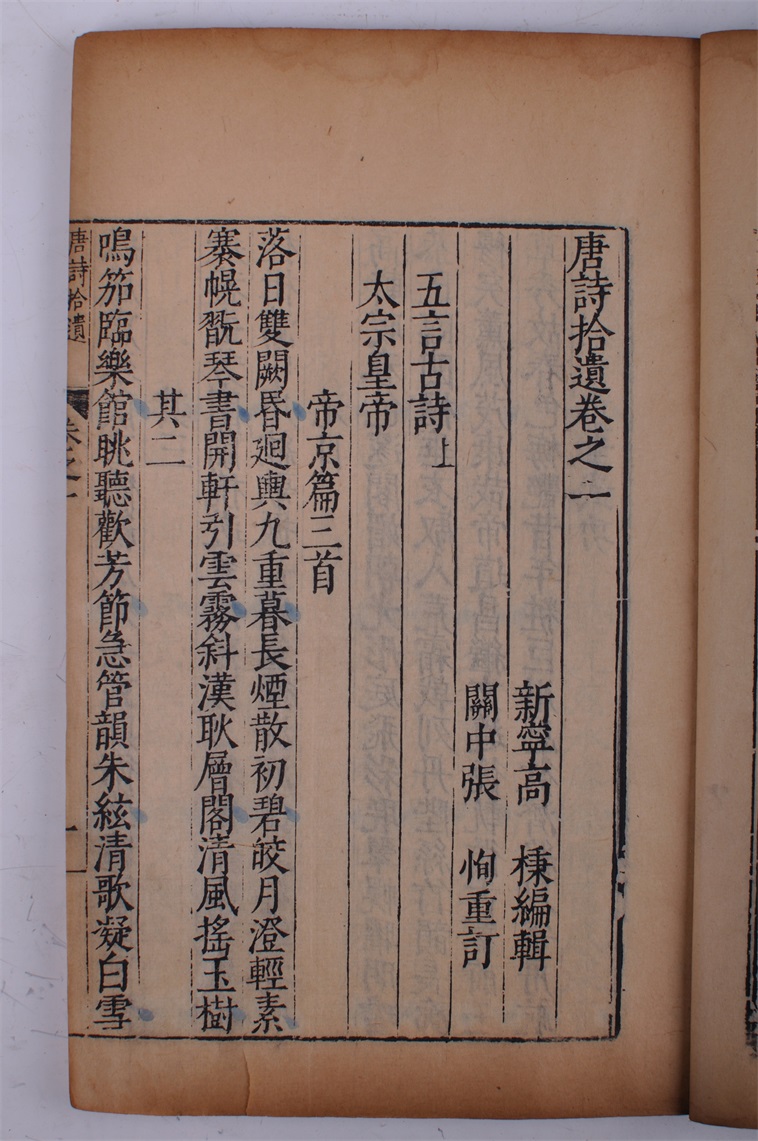 唐詩拾遺卷之一
新寧高 棅編輯
關中張 恂重訂
五言古詩上
太宗皇帝
帝京篇三首
落日雙闕昏廻輿九重暮長煙散初碧皎月澄輕素
搴幌翫琴書開軒引雲霧斜漢耿層閣清風搖玉樹
其二
鳴笳臨樂館眺聽歡芳節急管韻朱絃清歌凝白雪
唐詩拾遺
卷之一
一